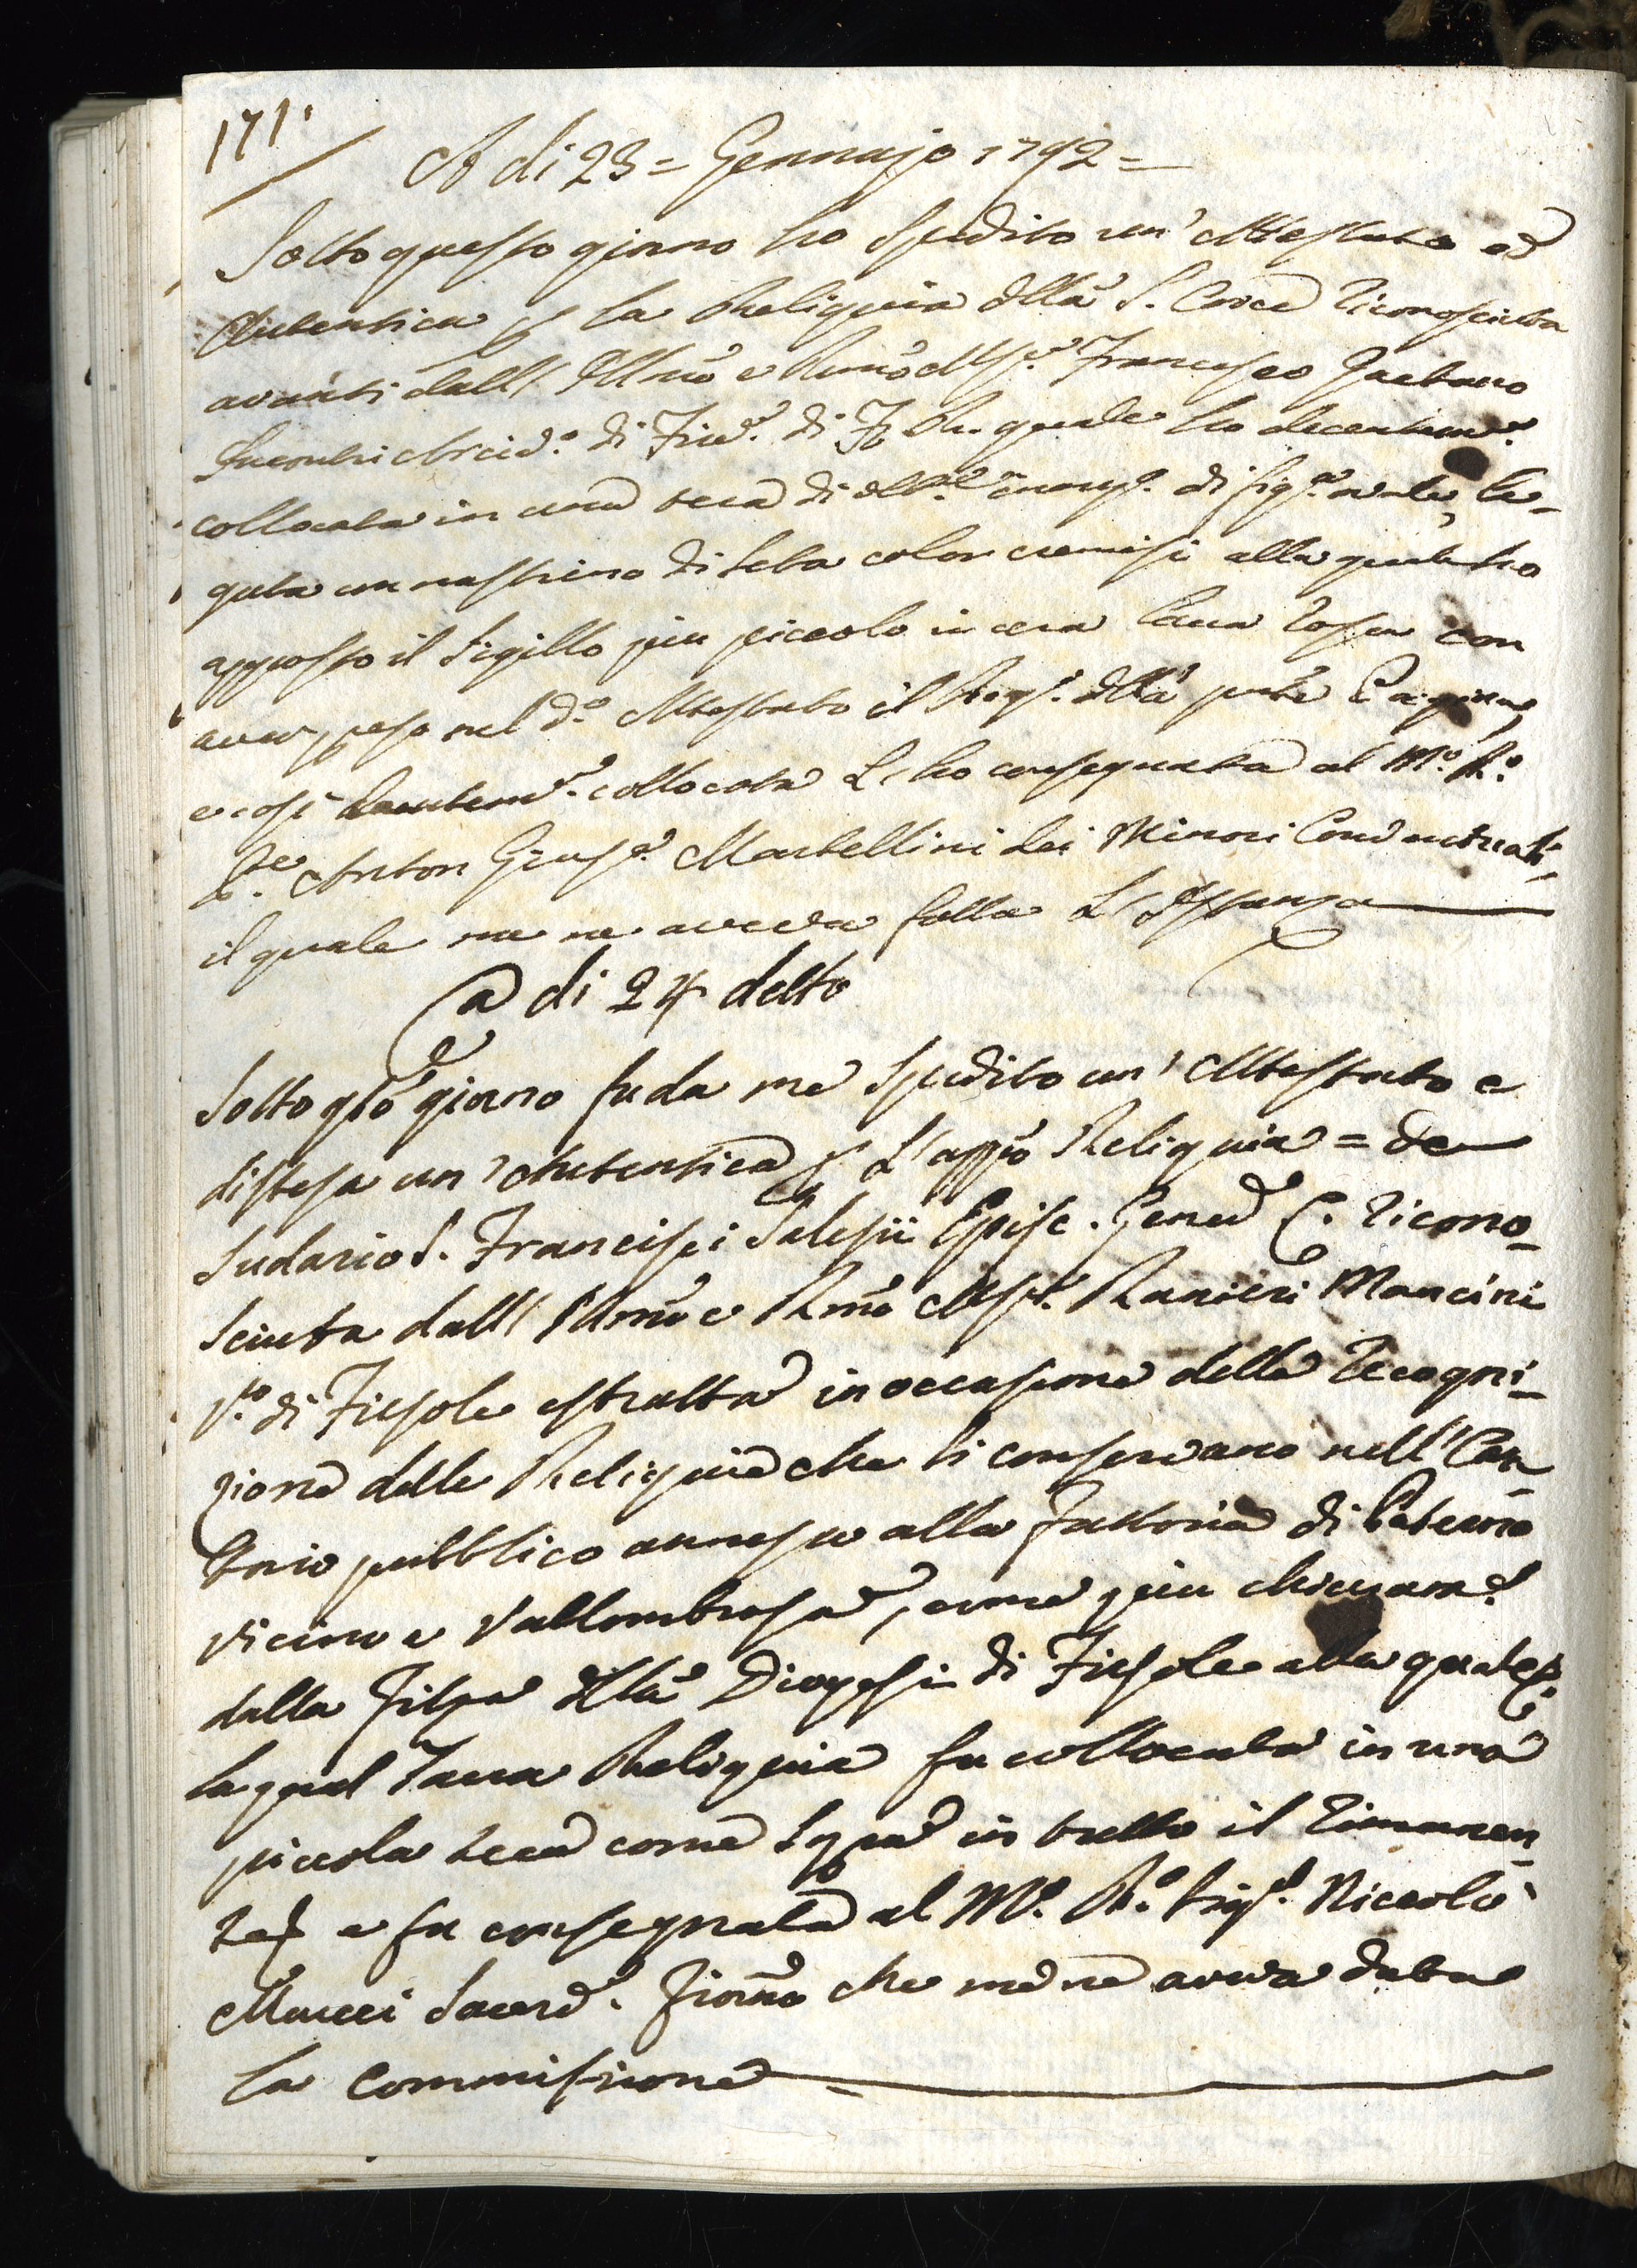 171.
A di 23 = Gennajo 1792 =
Sotto questo giorno ho spedito un' Attestato ed
Autentica p la Reliquia dlla S. Croce riconosciuta
avanti dall' Illmo e Rmo Msre Francesco Gaetano
Incontri Arcivo. di Fire. di quale ho decenteme.
collocata in una teca di di figa. ovale, le-
gata un nastrino di seta color cremisi alla quale ho
apposto il Sigillo piu piccolo in cera lacca rossa con
aver nel do. Attestato il dlla pnte Pagina,
e così decentemte. collocata L' ho consegnata al Mo. Ro.
Pre. Anton Giuspe. Martellini dei Minori Conventuali,
il quale me ne aveva fatta L' Istanza
A di 24 detto
Sotto qto giorno fu da me spedito un' Attestato e
distesa un' Autentica p L' appo Reliquia = de
Sudario S. Francisci Salesii Episc. Genev. C. ricono-
sciuta dall' Illmo e Rmo Msre. Ranieri Mancini
Vo. di Fiesole estratta in occasione della recogni-
zione delle Reliquie che si conservano nell' Ora-
torio pubblico annesso alla Fattoria di Paterno
vicino a Vallombrosa, come piu chiarame.
dalla Filza dlla Diogesi di Fiesole alla quale
la qual Sacra Reliquia fu collocata in una
piccola teca come sopra in tutto il rimanen-
te, e fu consegnata al Mo. Ro. Sigre. Niccolò
Mucci Sacerde. Fiorno che me ne aveva data
la Commissione